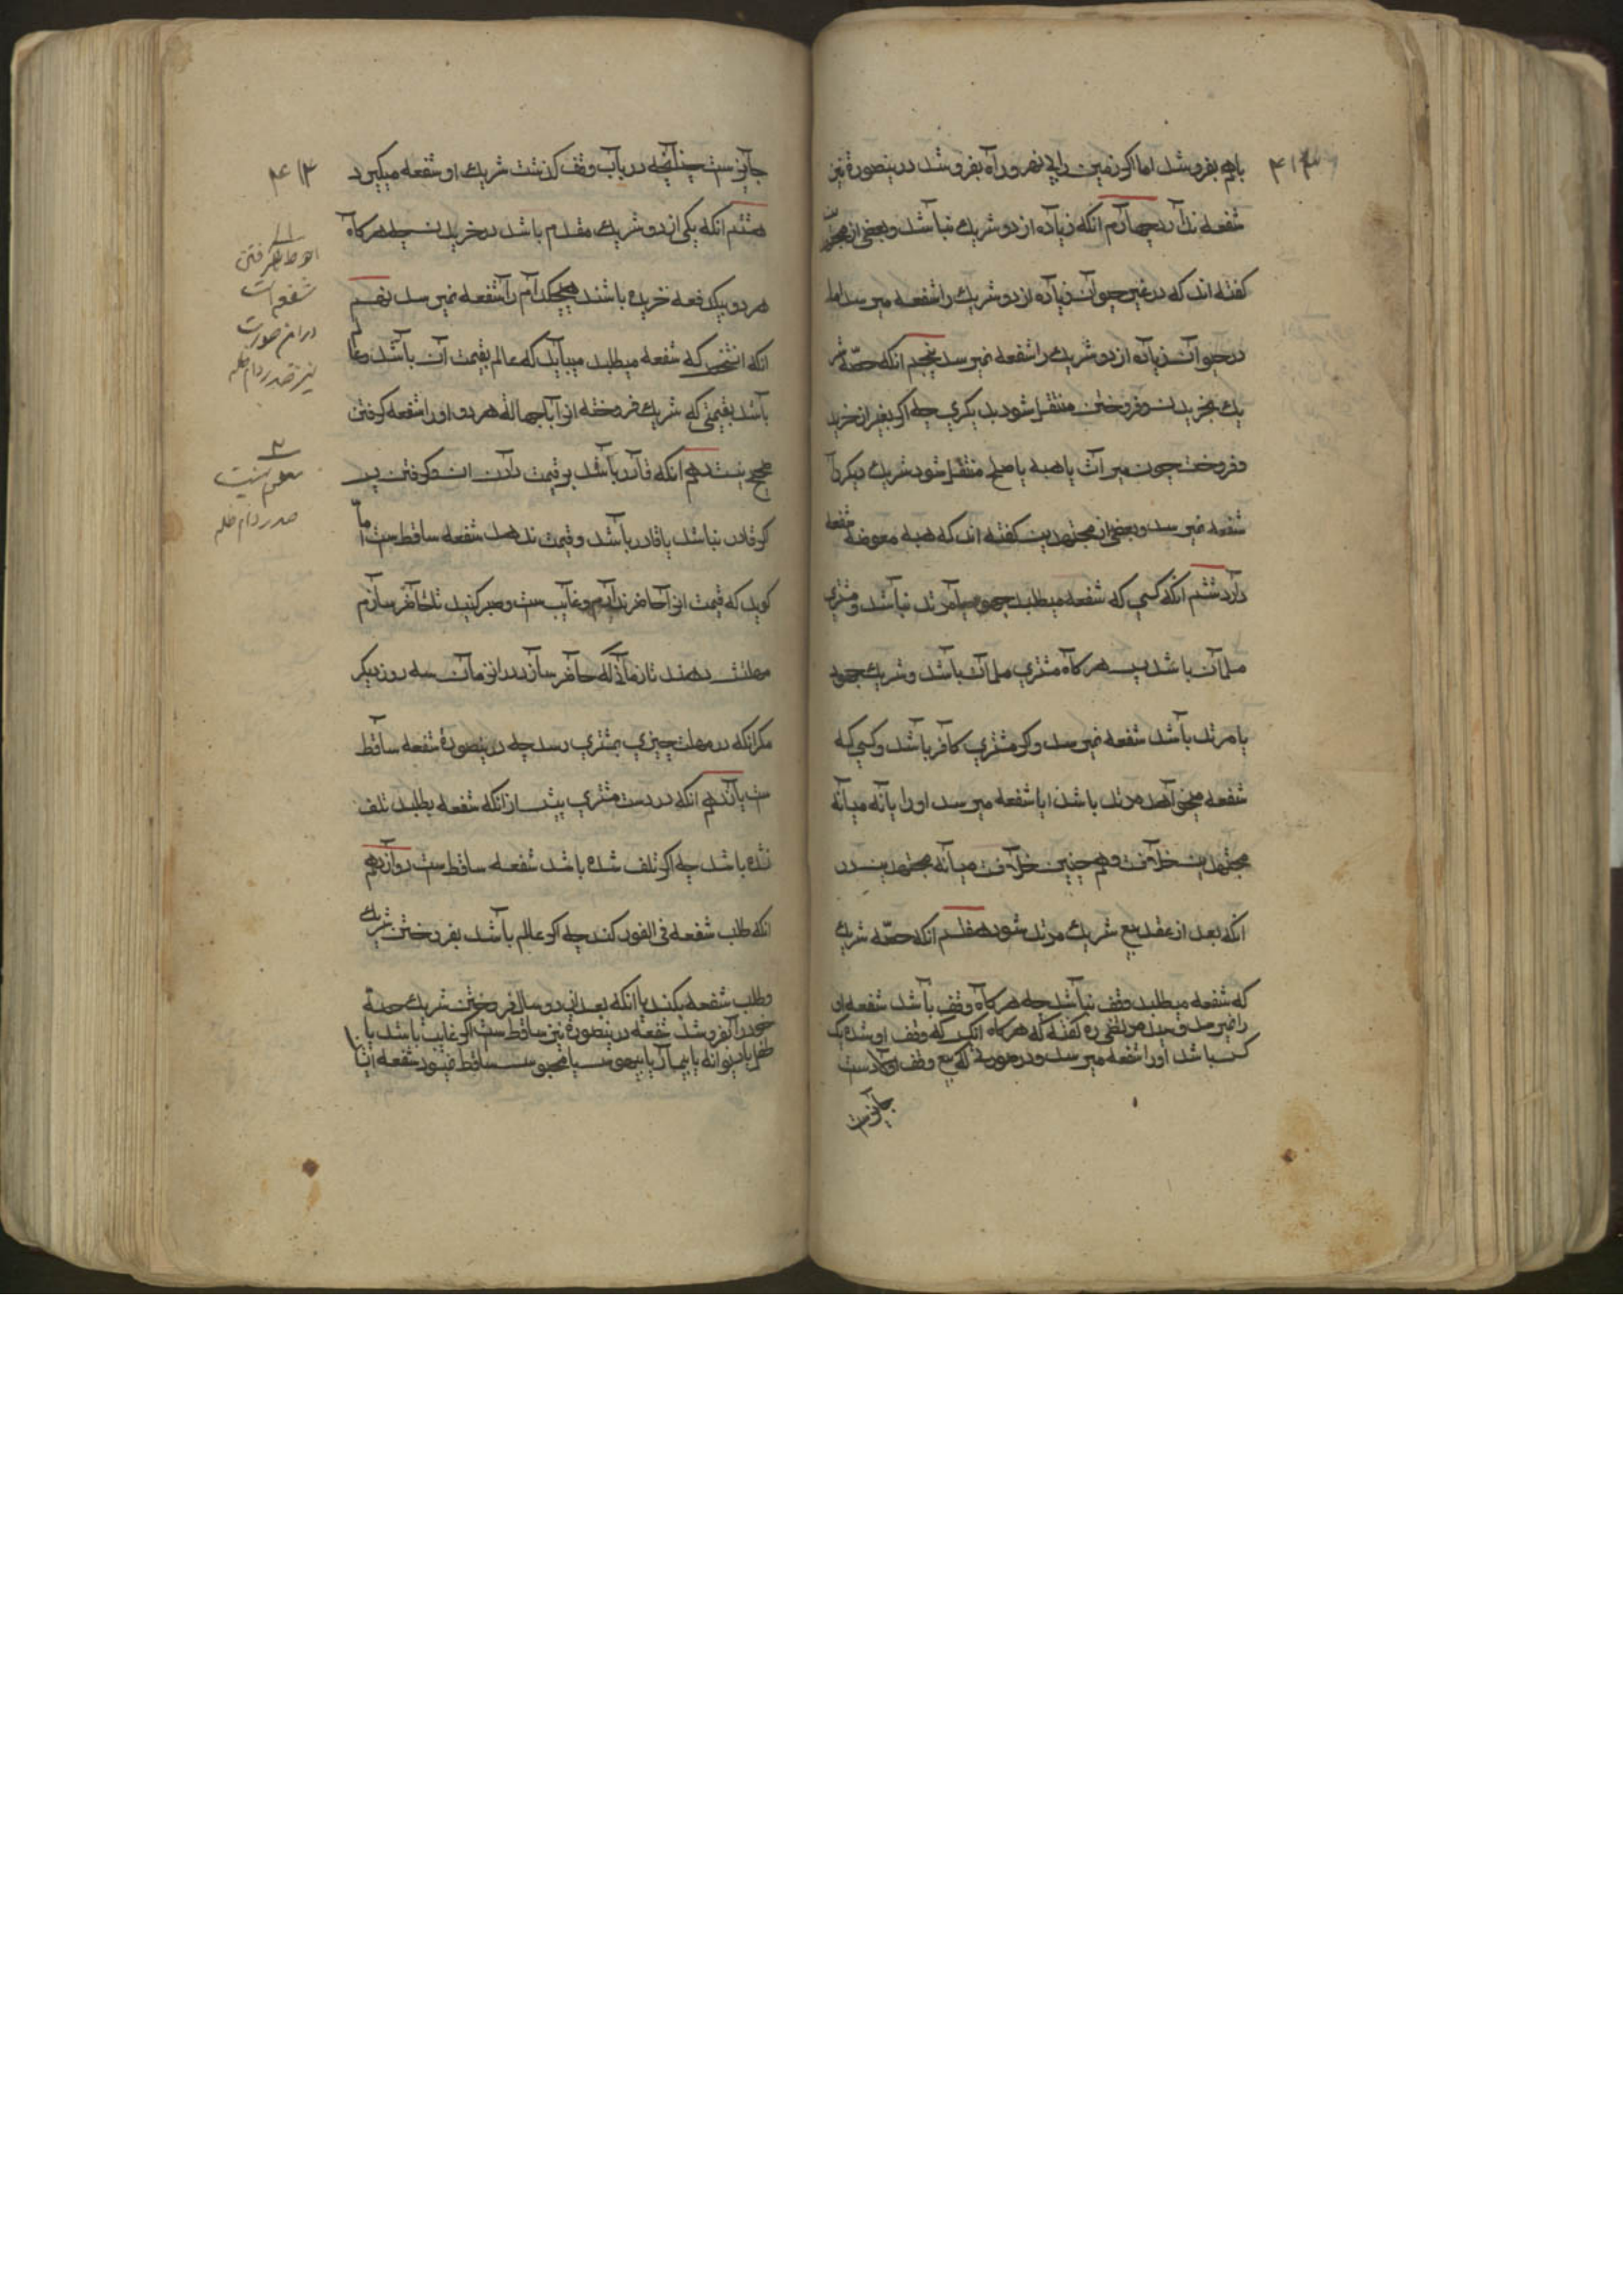 ۴۱۳
باهم بفروشد اما اکر زمین را بی نهر و راه بفروشد درینصورة نیز
شفعه ندارد چهارم انکه زیاده از دو شریك نباشد و بعضی از
کفته اند که در غیر حیوان زیاده از دو شریك را شفعه میرسد اما
در حیوان زیاده از دو شریك را شفعه نمیرسد پنجم انکه حصّه
یك بخریدن و فروختن منتقل شود بدیکری چه اکر بغیر از خرید
و فروخت چون میراث یا هبه یا صلح منتقل شود شریك دیکر را
شفعه نمیرسد و بعضی از مجتهدین کفته اند که هبه معوضه شفعه
دارد ششم انکه کسی که شفعه میطلبد جهود یا مرتد نباشد و مشتری
مسلمان باشد پس هرکاه مشتری مسلمان باشد و شریك جهود
یا مرتد باشد شفعه نمیرسد و کر مشتری کافر باشد و کسی که
شفعه میخواهد مرتد باشد ایا شفعه میرسد او را یا نه میانه
مجتهدین خلافست و همچنین خلافست میانه مجتهدین در
انکه بعد از عقد بیع شریك مرتد شود هفتم انکه حصّه شریك
که شفعه میطلبد وقف نباشد چه هرکاه وقف باشد شفعه او
را نمیرسد و سید مرتضی ره کفته که هرکاه انکس که وقف او شده یک
کس باشد او را شفعه میرسد و در صورتی که بیع وقف اولاد ست
جایزست
۴۱۳
جایزست چنانچه در باب وقف کذشت شریك او شفعه میکیرد
هشتم انکه یکی از دو شریك مقدم باشد در خریدن چه هرکاه
هر دو بیکدفعه خریده باشند هیچکدام را شفعه نمیرسد نهم
انکه انشخص که شفعه میطلبد میباید که عالم بقیمت آن باشد و عالم
باشد بقیمتی که شریك فروخته انرا با جهالة هر دو او را شفعه کرفتن
صحیح نیست دهم انکه قادر باشد بر قیمت دادن ان و کرفتن پس
کر قادر نباشد یا قادر باشد و قیمت ندهد شفعه ساقط ست اما
کوید که قیمت انرا حاضر ندارم و غایب ست و صبر کنید تا حاضر سازم
مهلتش دهند تا زمانی که حاضر سازد در انزمان سه روز دیکر
مکر انکه در مهلت چیزی بمشتری رسد چه درینصورة شفعه ساقط
ست یازدهم انکه در دست مشتری پیش از انکه شفعه بطلبد تلف
نشده باشد چه اکر تلف شده باشد شفعه ساقط ست دوازدهم
انکه طلب شفعه فی الفور کند چه اکر عالم باشد بفروختن شریك
و طلب شفعه نکند یا انکه بعد از دو سال فروختن شریك حصّه
خود را بفروشد شفعه درینصورة نیز ساقط ست اکر غایب باشد یا
طفل یا دیوانه یا بیمار یا بیهوش یا محبوس ساقط نمیشود شفعه
۱
احوط نکرفتن
شفعه است
در این صورت
نیز صدر دام ظله
۲
معلوم نیست
صدر دام ظله